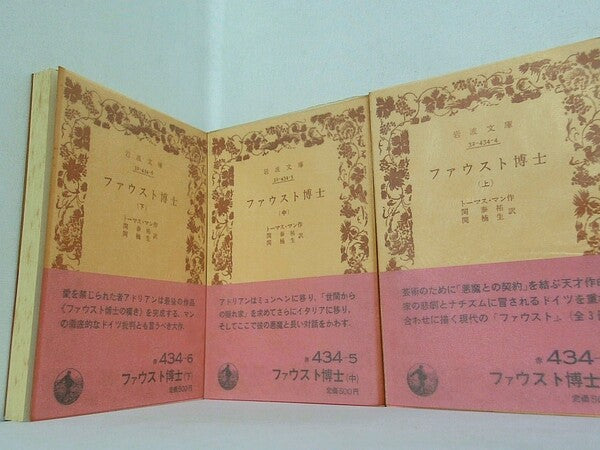 岩波文庫
32-434-6
ファウスト博士
(下)
トーマス・マン作
関 泰祐訳
関 楠生
愛を禁じられた者アドリアンは最後の作品
《ファウスト博士の嘆き》を完成する. マン
の徹底的なドイツ批判とも言うべき大作.
赤 434-6
ファウスト博士(下)
定価500円
岩波文庫
32-434-5
ファウスト博士
(中)
トーマス・マン作
関 泰祐訳
関 楠生
アドリアンはミュンヘンに移り, 「世間から
の隠れ家」を求めてさらにイタリアに移り,
そしてここで彼の悪魔と長い対話をかわす.
赤 434-5
ファウスト博士(中)
定価500円
岩波文庫
32-434-4
ファウスト博士
(上)
トーマス・マン作
関 泰祐訳
関 楠生
芸術のために「悪魔との契約」を結ぶ天才作
家の悲劇とナチズムに冒されるドイツを重
合わせに描く現代の「ファウスト」. (全3
赤 434-
ファウスト博士
定価500